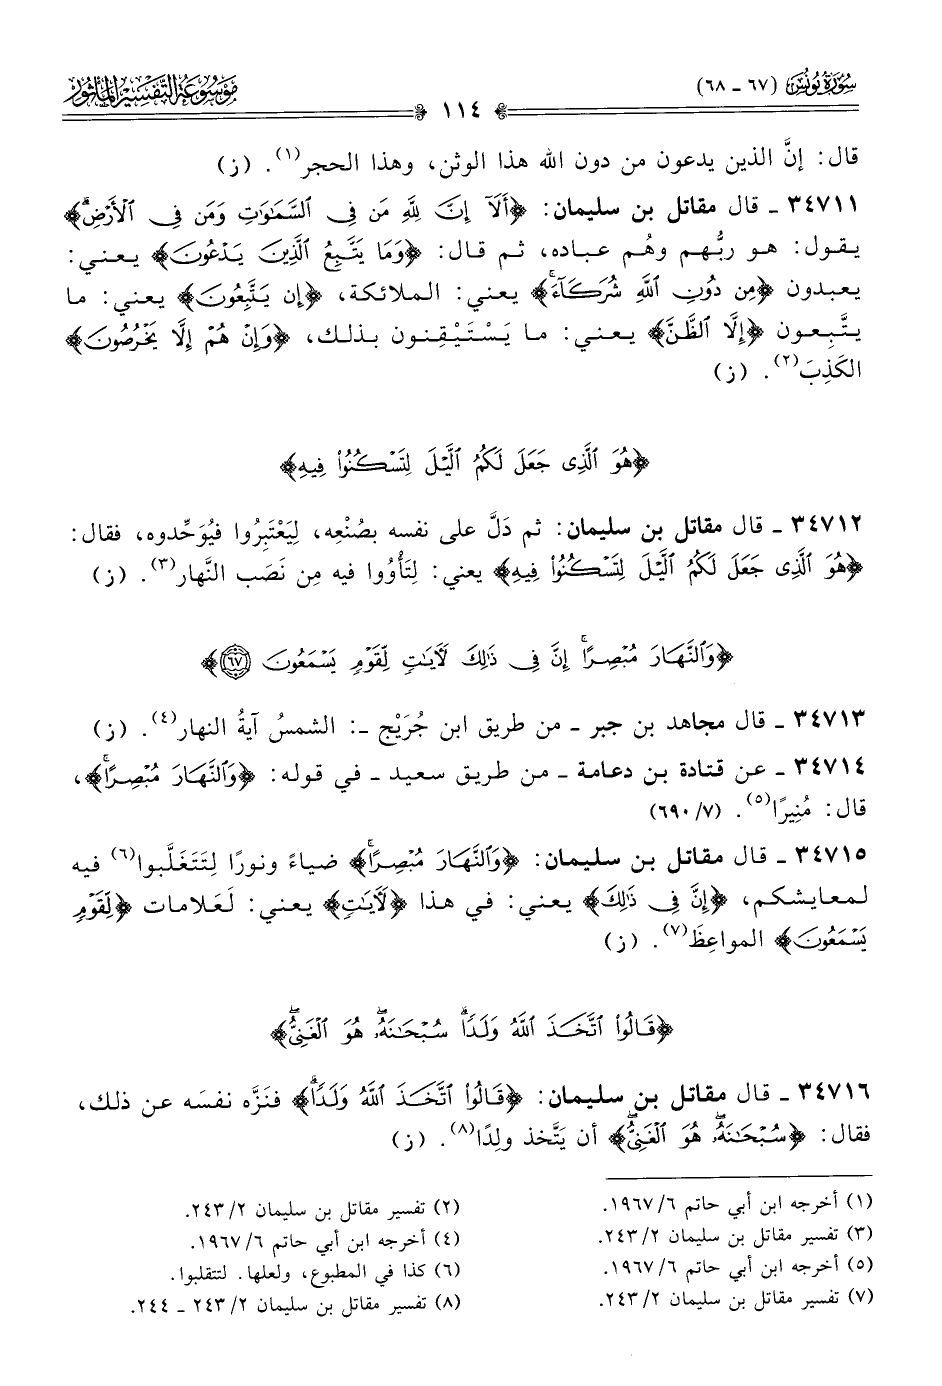 سُورَةُ يُونُسَ (٦٧ ـ ٦٨)
١١٤
مَوْسُوعَة التَّفْسِيرِ المَأْثُور
قال: إنَّ الذين يدعون من دون الله هذا الوثن، وهذا الحجر(١). (ز)
٣٤٧١١ ـ قال مقاتل بن سليمان: ﴿أَلَآ إِنَّ لِلَّهِ مَن فِى ٱلسَّمَٰوَٰتِ وَمَن فِى ٱلْأَرْضِۗ﴾
يقول: هو ربُّهم وهُم عباده، ثم قال: ﴿وَمَا يَتَّبِعُ ٱلَّذِينَ يَدْعُونَ﴾ يعني:
يعبدون ﴿مِن دُونِ ٱللَّهِ شُرَكَآءَۚ﴾ يعني: الملائكة، ﴿إِن يَتَّبِعُونَ﴾ يعني: ما
يتَّبِعون ﴿إِلَّا ٱلظَّنَّ﴾ يعني: ما يَسْتَيْقِنون بذلك، ﴿وَإِنْ هُمْ إِلَّا يَخْرُصُونَ﴾
الكَذِبَ(٢). (ز)
﴿هُوَ ٱلَّذِى جَعَلَ لَكُمُ ٱلَّيْلَ لِتَسْكُنُوا۟ فِيهِ﴾
٣٤٧١٢ ـ قال مقاتل بن سليمان: ثم دَلَّ على نفسه بصُنْعِه، لِيَعْتَبِرُوا فيُوَحِّدوه، فقال:
﴿هُوَ ٱلَّذِى جَعَلَ لَكُمُ ٱلَّيْلَ لِتَسْكُنُوا۟ فِيهِ﴾ يعني: لِتَأْوُوا فيه مِن نَصَب النَّهار(٣). (ز)
﴿وَٱلنَّهَارَ مُبْصِرًاۚ إِنَّ فِى ذَٰلِكَ لَءَايَٰتٍ لِّقَوْمٍ يَسْمَعُونَ ٦٧﴾
٣٤٧١٣ ـ قال مجاهد بن جبر ـ من طريق ابن جُرَيْج ـ: الشمسُ آيةُ النهار(٤). (ز)
٣٤٧١٤ ـ عن قتادة بن دعامة ـ من طريق سعيد ـ في قوله: ﴿وَٱلنَّهَارَ مُبْصِرًاۚ﴾،
قال: مُنِيرًا(٥). (٧/ ٦٩٠)
٣٤٧١٥ ـ قال مقاتل بن سليمان: ﴿وَٱلنَّهَارَ مُبْصِرًاۚ﴾ ضياءً ونورًا لِتَتَغَلَّبوا(٦) فيه
لمعايشكم، ﴿إِنَّ فِى ذَٰلِكَ﴾ يعني: في هذا ﴿لَءَايَٰتٍ﴾ يعني: لَعَلامات ﴿لِّقَوْمٍ
يَسْمَعُونَ﴾ المواعِظَ(٧). (ز)
﴿قَالُوا۟ ٱتَّخَذَ ٱللَّهُ وَلَدًاۗ سُبْحَٰنَهُۥۖ هُوَ ٱلْغَنِىُّۖ﴾
٣٤٧١٦ ـ قال مقاتل بن سليمان: ﴿قَالُوا۟ ٱتَّخَذَ ٱللَّهُ وَلَدًاۗ﴾ فنَزَّه نفسَه عن ذلك،
فقال: ﴿سُبْحَٰنَهُۥۖ هُوَ ٱلْغَنِىُّۖ﴾ أن يَتَّخذ ولدًا(٨). (ز)
(١) أخرجه ابن أبي حاتم ٦/ ١٩٦٧.
(٢) تفسير مقاتل بن سليمان ٢/ ٢٤٣.
(٣) تفسير مقاتل بن سليمان ٢/ ٢٤٣.
(٤) أخرجه ابن أبي حاتم ٦/ ١٩٦٧.
(٥) أخرجه ابن أبي حاتم ٦/ ١٩٦٧.
(٦) كذا في المطبوع، ولعلها. لتتقلبوا.
(٧) تفسير مقاتل بن سليمان ٢/ ٢٤٣.
(٨) تفسير مقاتل بن سليمان ٢/ ٢٤٣ ـ ٢٤٤.